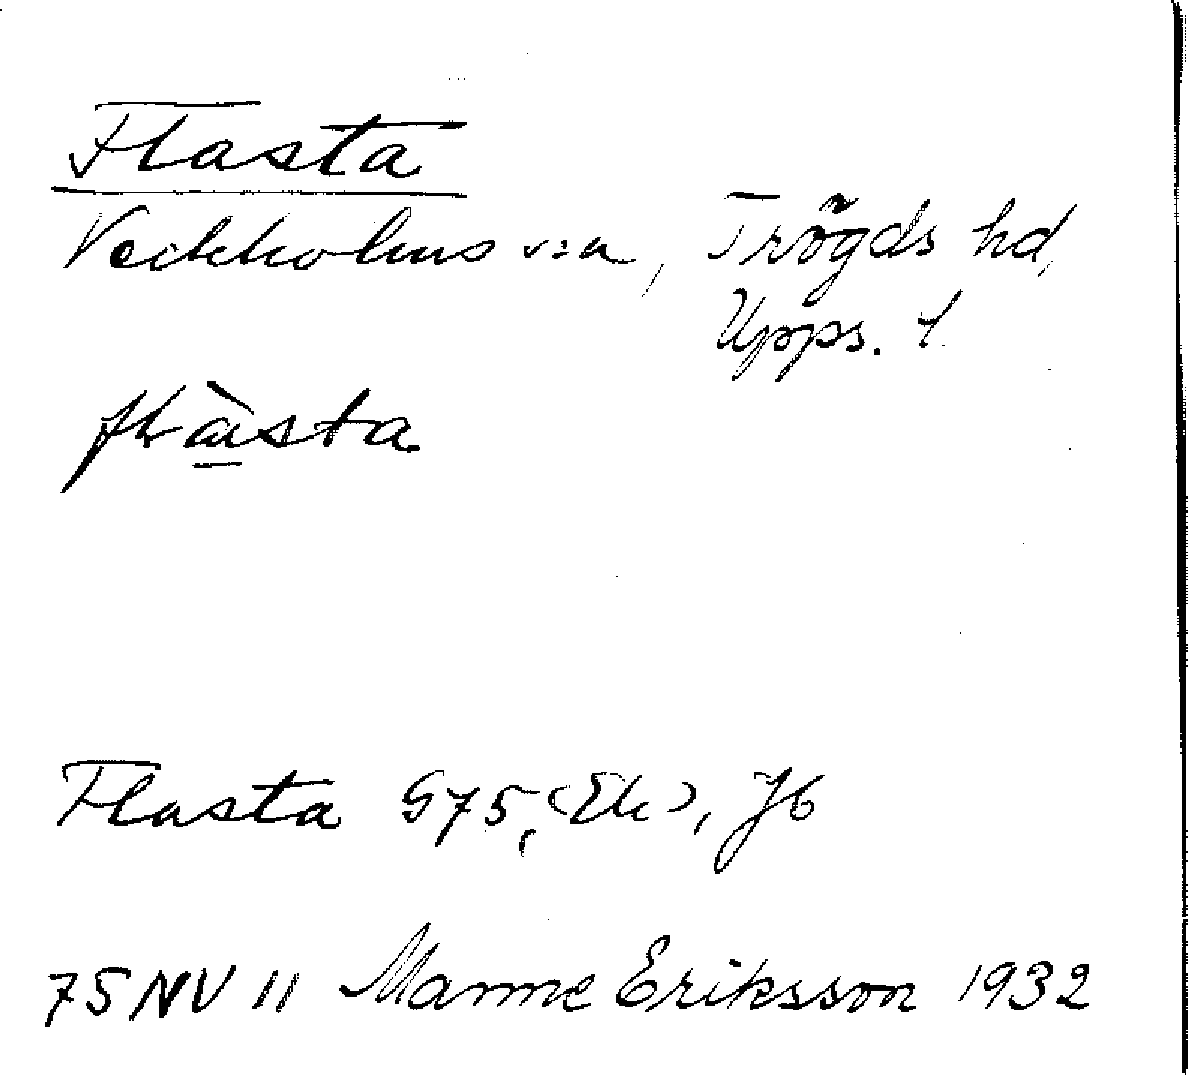 Flasta
Veckholms sn, Trögds hd,
Upps. l.
flàsta
Flasta G75, (Ek), Jb
75 NV 11 Manne Eriksson 1932